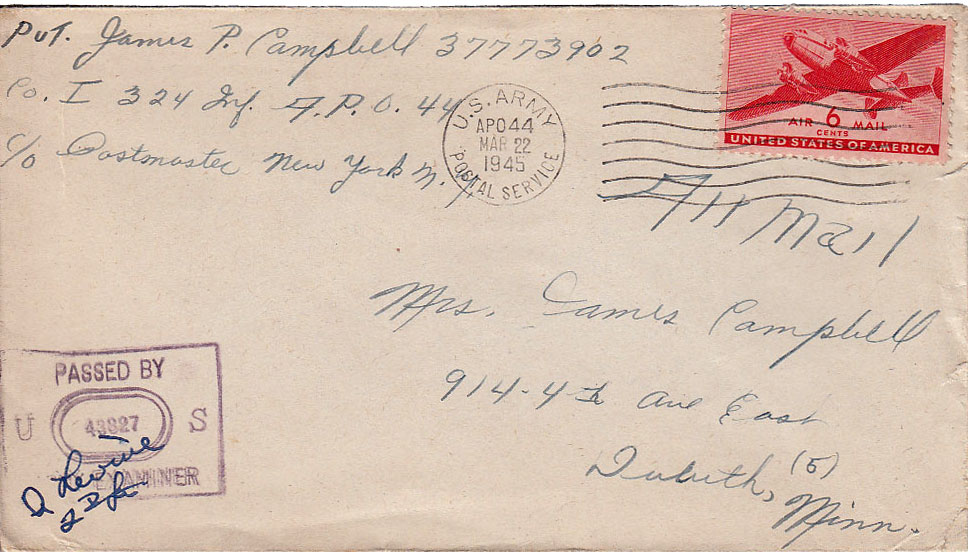 Pvt. James P. Campbell 37773902
Co. I 324 Inf. A.P.O. 44
c/o Postmaster New York N.Y.
U.S. ARMY
APO 44
MAR 22
1945
POSTAL SERVICE
AIR 6 MAIL
CENTS
UNITED STATES OF AMERICA
Air Mail
Mrs. James Campbell
914-4th Ave East
Duluth, (5)
Minn.
PASSED BY
U 43827 S
EXAMINER
D Levine
2d Lt